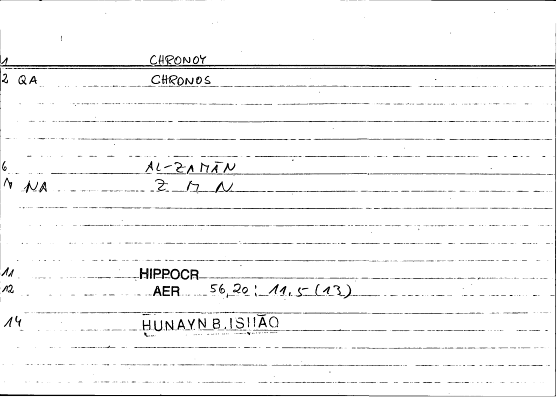 1 CHRONOY
2 QA CHRONOS
6 AL-ZAMĀN
7 NA Z M N
11 HIPPOCR
12 AER 56,20: 11.5 (13)
14 ḤUNAYN B. ISḤĀQ